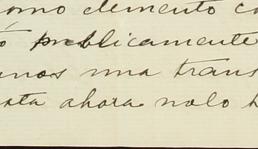 como elemento co
ó publicamente
unos una trans
ata ahora nolo h